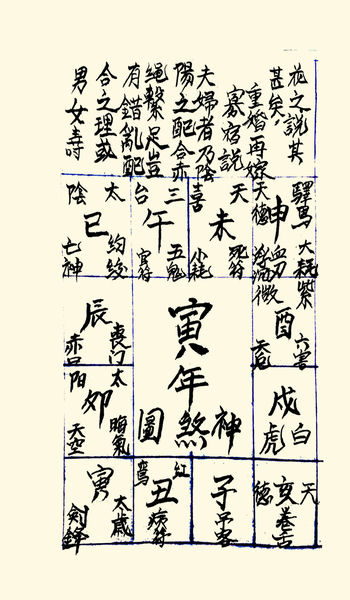 花之說其
甚矣
重婚再嫁
寡宿說
夫婦者乃陰
陽之配合赤
繩繫足豈
有錯亂配
合之理或
男女壽
驛馬
大耗
紫微
申
天德
血刃
浮沉
天
未
喜
死符
小耗
三
台
午
五鬼
官符
太
陰
巳
勾絞
亡神
酉
六害
辰
喪門
寅年煞神圖
戌
白虎
太陽
卯
晦氣
天空
天德
亥
卷舌
子
弔客
紅鸞
丑
病符
寅
太歲
劍鋒